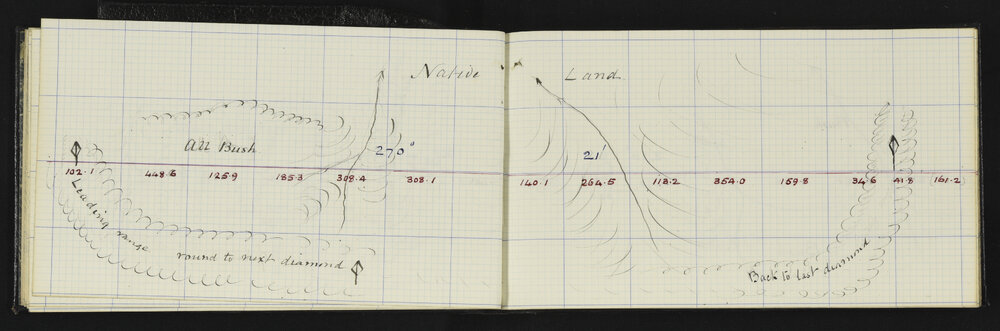 Native Land
All Bush
270° 21'
102.1 448.6 125.9 185.3 308.4 308.1 140.1 264.5 113.2 354.0 159.8 34.6 41.8 (161.2)
Leading range
round to next diamond
Back to last diamond